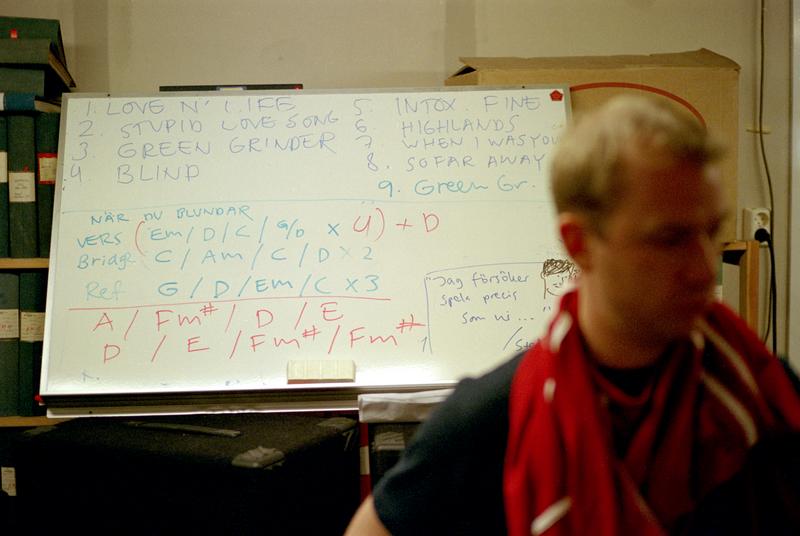 1. LOVE N' LIFE
2. STUPID LOVE SONG
3. GREEN GRINDER
4. BLIND
5. INTOX. FINE
6 HIGHLANDS
7 WHEN I WAS YOU
8. SO FAR AWAY
9. Green Gr.
NÄR DU BLUNDAR
VERS (Em / D / C / G/D × 4) + D
Bridge C / Am / C / D × 2
Ref G / D / Em / C × 3
A / Fm# / D / E
D / E / Fm# / Fm#
"Jag försöker
spela precis
som ni..."